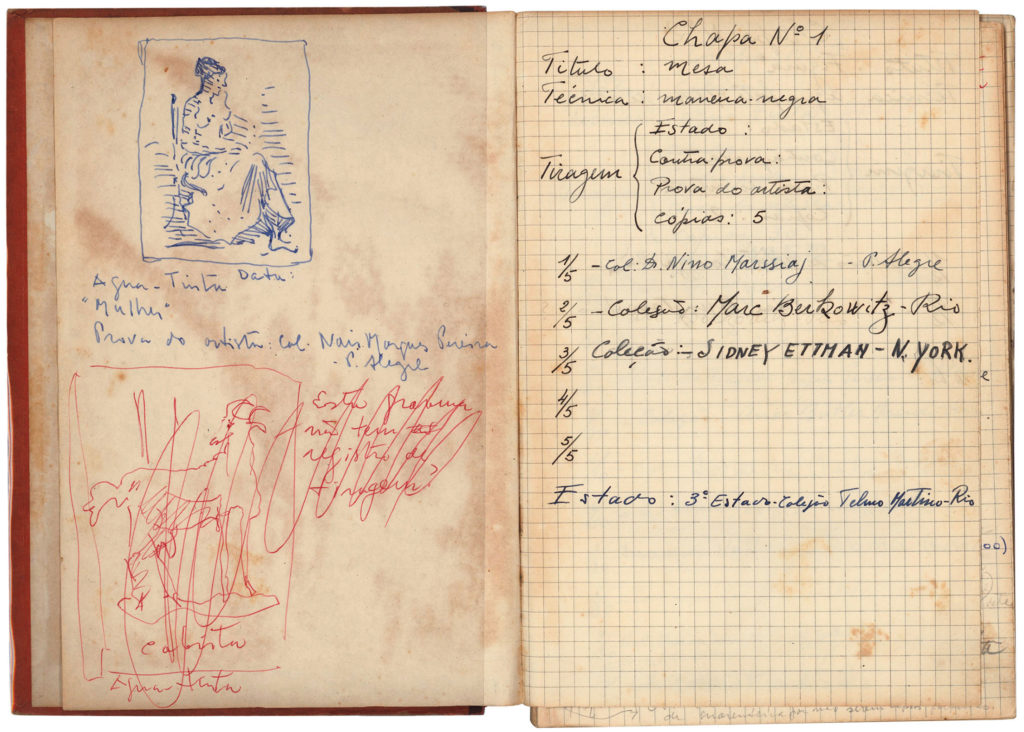 Agua-Tinta Data:
"Mulher"
Prova do artista: Col. Nais Marques Pereira
- P. Alegre
Esta
não tem
registro de
tiragem?
Cabrita
Agua-tinta
Chapa Nº 1
Titulo : mesa
Técnica : maneira-negra
Tiragem
Estado :
Contra-prova:
Prova do artista:
Cópias: 5
1/5 - Col: D. Nino Marssiaj - P. Alegre
2/5 - Coleção: Marc Berkowitz - Rio
3/5 Coleção:- SIDNEY ETTMAN - N. YORK.
4/5
5/5
Estado : 3º Estado-Coleção Telmo Martino-Rio
e
oo)